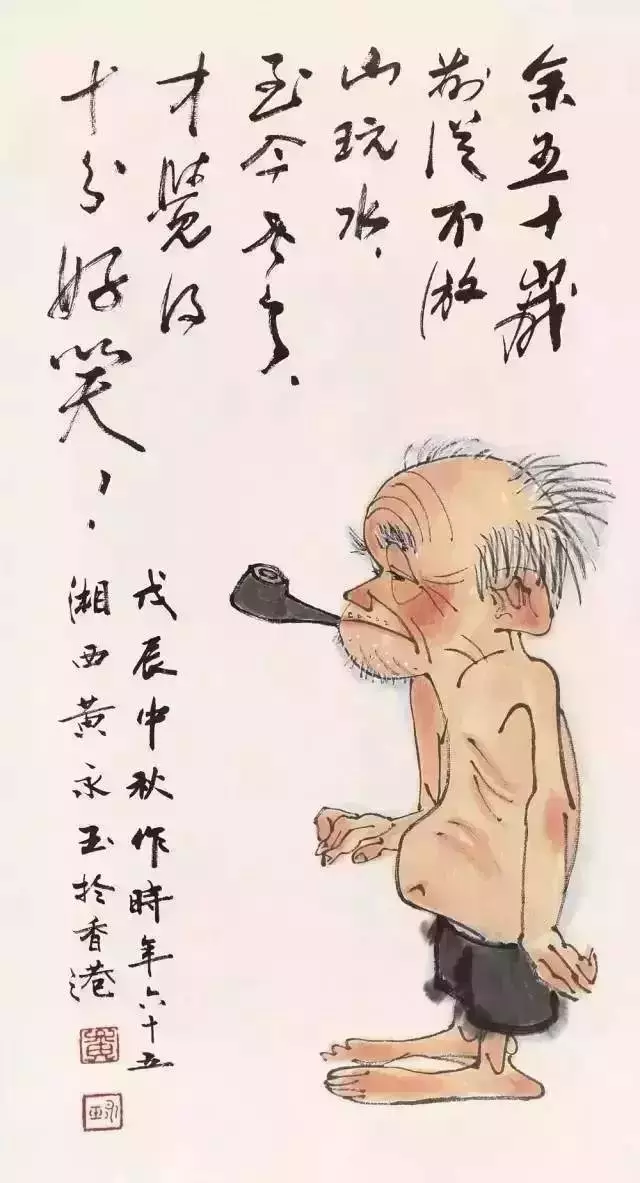 余五十歲
前從不游
山玩水、
至今老了、
才覺得
十分好笑、、
戊辰中秋作時年六十五
湘西黄永玉於香港
黄